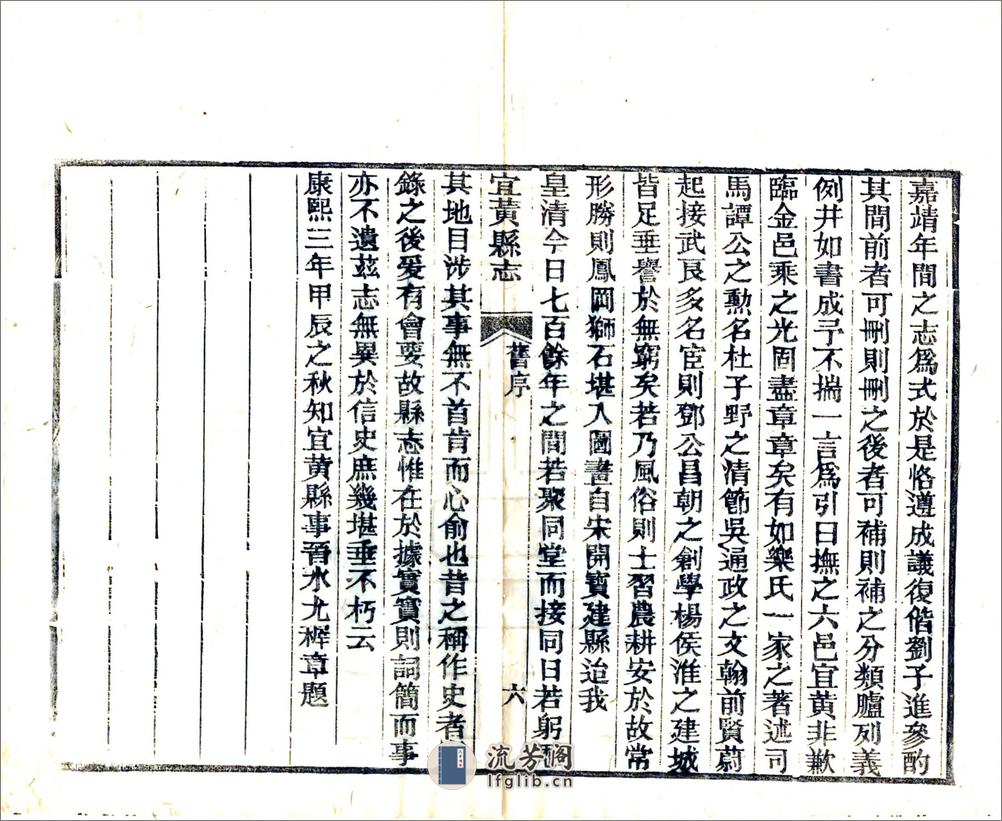 嘉靖年間之志爲式於是恪遵成議復偕劉子進參酌
其間前者可刪則刪之後者可補則補之分類臚列義
例井如書成予不揣一言爲引曰撫之六邑宜黃非歉
臨金邑乘之光固盡章章矣有如樂氏一家之著述司
馬譚公之勳名杜子野之清節吳通政之文翰前賢蔚
起接武良多名宦則鄧公昌朝之創學楊侯淮之建城
皆足垂譽於無窮矣若乃風俗則士習農耕安於故常
形勝則鳳岡獅石堪入圖畫自宋開寶建縣迨我
皇清今日七百餘年之間若聚同堂而接同日若躬
宜黃縣志
舊序
六
其地目涉其事無不首肯而心俞也昔之稱作史者
錄之後爰有會要故縣志惟在於據實實則詞簡而事
亦不遺茲志無異於信史庶幾堪垂不朽云
康熙三年甲辰之秋知宜黃縣事晉水尤稺章題
流芳阁
lfglib.cn